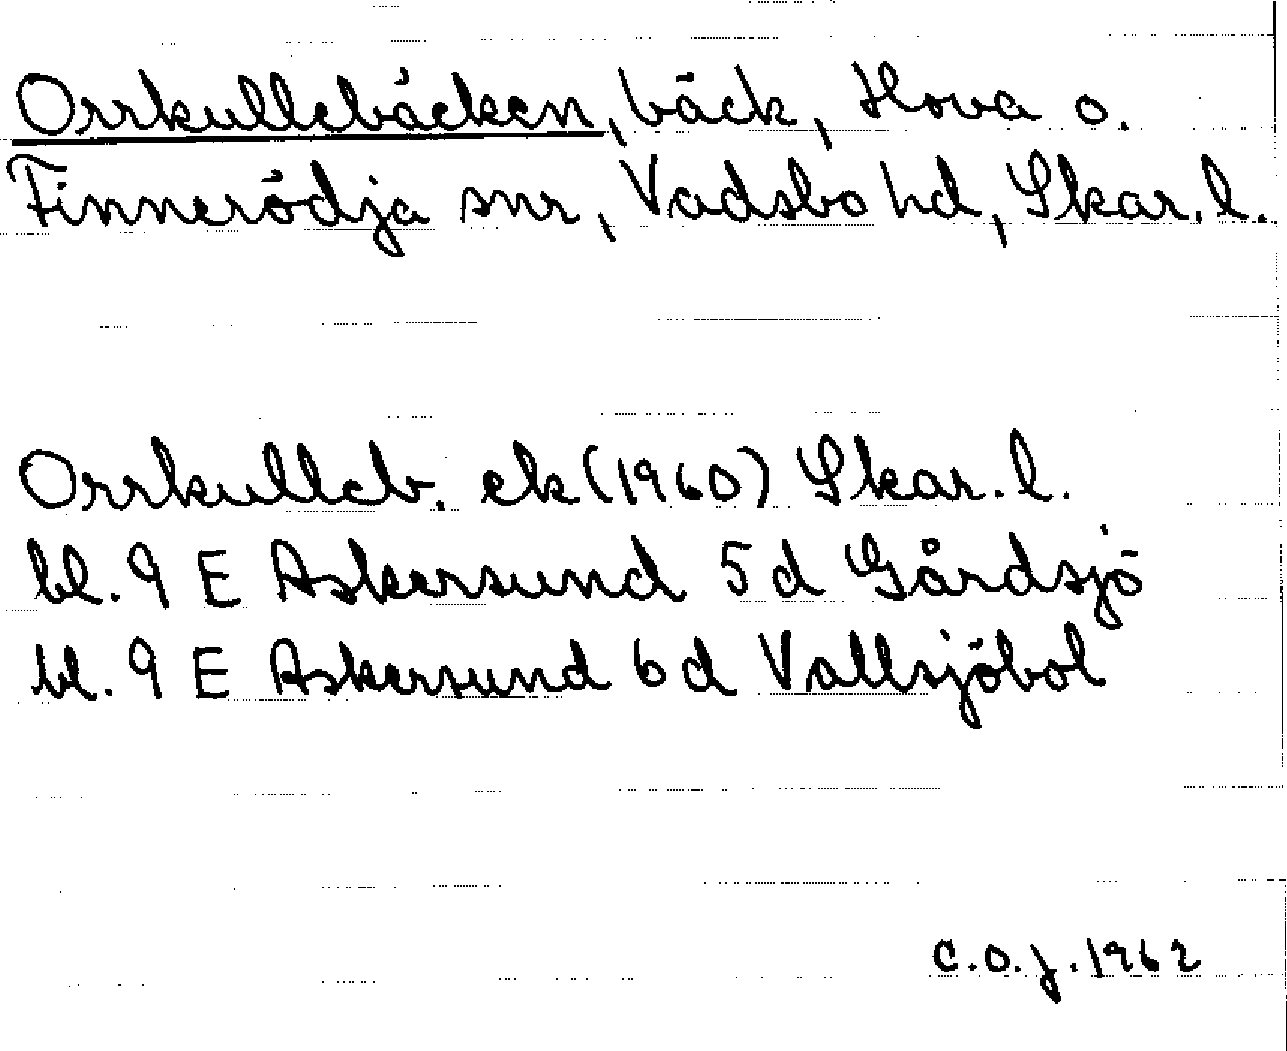 Orrkullebäcken, bäck, Hova o.
Finnerödja snr, Vadsbo hd, Skar. l.
Orrkulleb. ek (1960) Skar. l.
bl. 9 E Askersund 5 d Gårdsjö
bl. 9 E Askersund 6 d Vallsjöbol
C.O.J. 1962